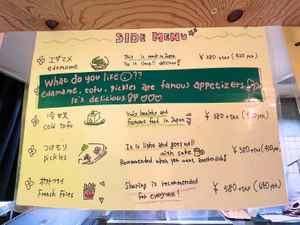 SIDE MENU
エダマメ
edamame
This is most in Japan
¥380+tax (420yen)
What do you like ??
edamame, tofu, pickles are famous appetizers
It's delicious!!
冷奴
Cold tofu
Very healthy and
famous food in Japan
¥380+tax (420yen)
つけモノ
pickles
It is light and goes well
with sake
Recommended when you want
¥380+tax (420yen)
ポテトフライ
French fries
Sharing is recommended
for everyone!
¥580+tax (640yen)